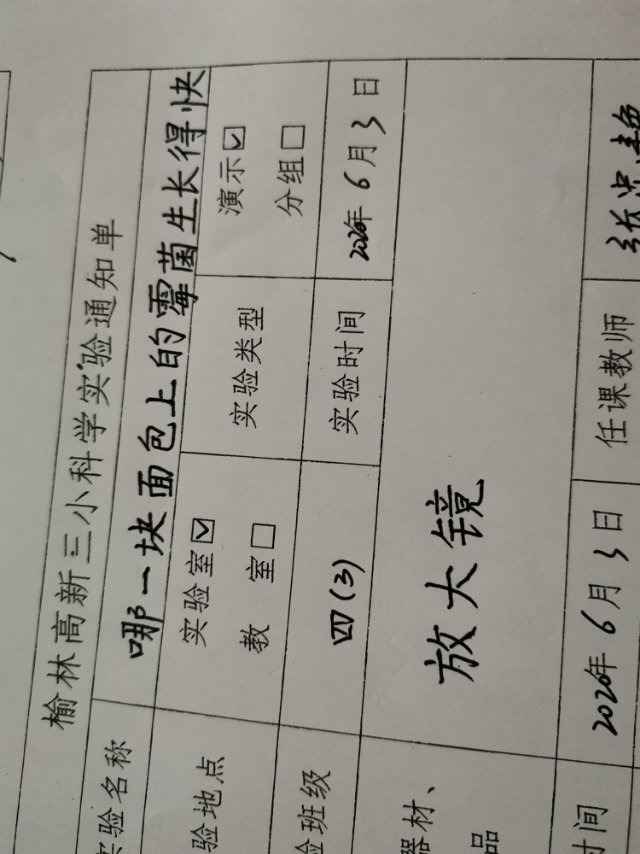 榆林高新三小科学实验通知单
实验名称 哪一块面包上的霉菌生长得快
验地点 实验室☑ 教室☐ 实验类型 演示☑ 分组☐
验班级 四(3) 实验时间 2020年6月3日
器材、品 放大镜
时间 2020年6月3日 任课教师 张